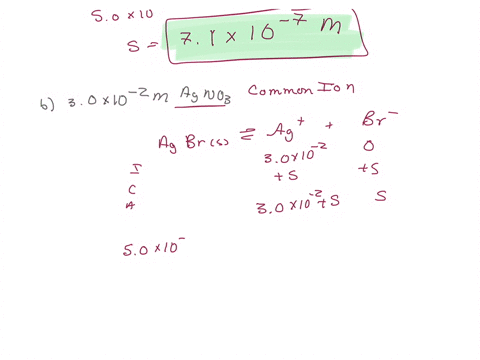 5.0 x 10
S = 7.1 x 10⁻⁷ M
b) 3.0 x 10⁻² m AgNO₃ Common Ion
AgBr(s) ⇌ Ag⁺ + Br⁻
I 3.0 x 10⁻² 0
C +S +S
A 3.0 x 10⁻² + S S
5.0 x 10⁻